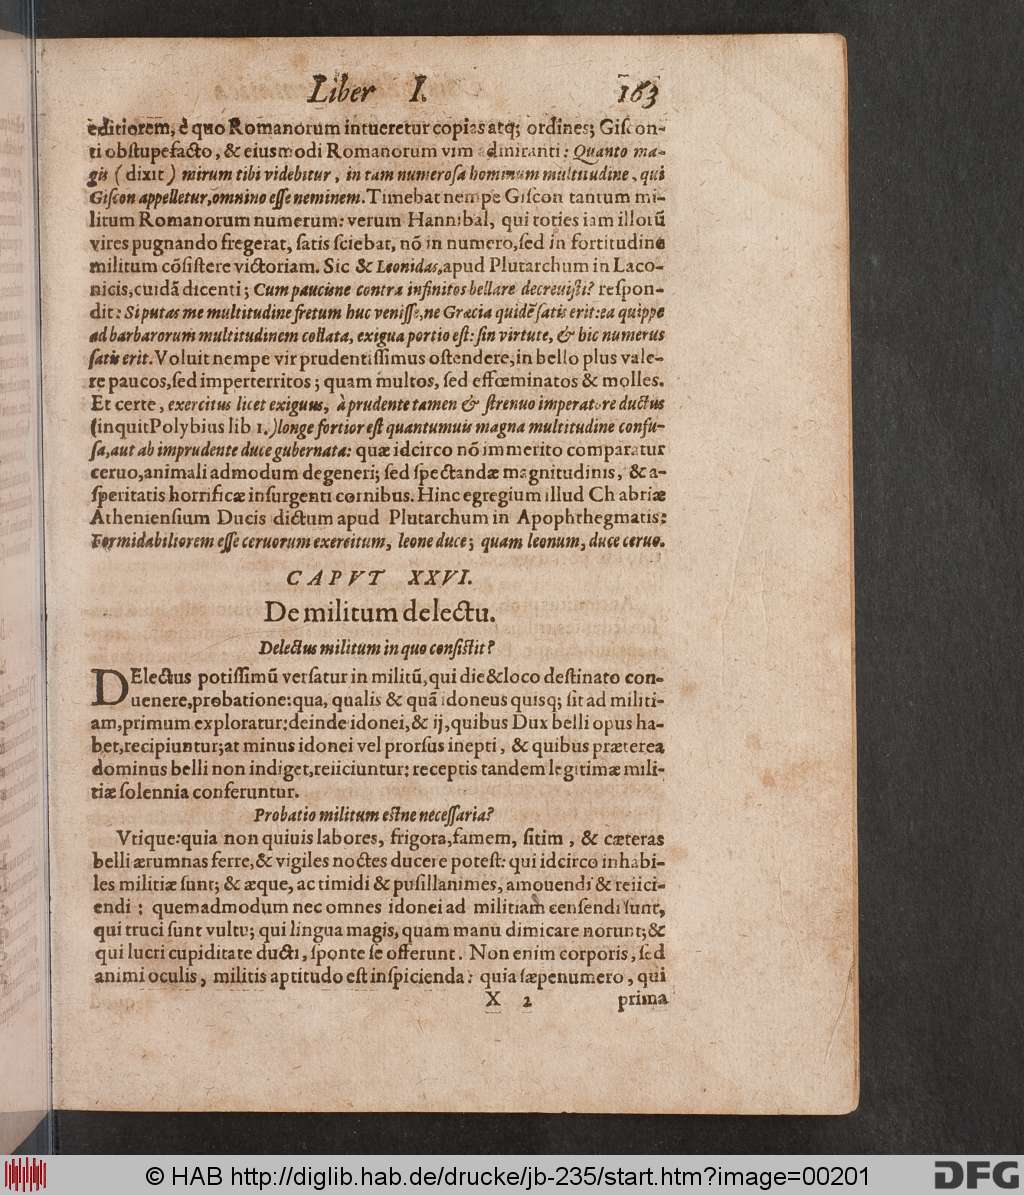 Liber I. 163
editiorem, è quo Romanorum intueretur copias atq; ordines; Giſcon-
ti obſtupefacto, & eiusmodi Romanorum vim admiranti: Quanto ma-
gis ( dixit ) mirum tibi videbitur, in tam numeroſa hominum multitudine, qui
Giſcon appelletur, omnino eſſe neminem. Timebat nempe Giſcon tantum mi-
litum Romanorum numerum: verum Hannibal, qui toties iam illorũ
vires pugnando fregerat, ſatis ſciebat, nõ in numero, ſed in fortitudine
militum cõſiſtere victoriam. Sic & Leonidas, apud Plutarchum in Laco-
nicis, cuidã dicenti; Cum paucisne contra infinitos bellare decreuiſti? reſpon-
dit: Si putas me multitudine fretum huc veniſſe, ne Græcia quidẽ ſatis erit: ea quippe
ad barbarorum multitudinem collata, exigua portio eſt: ſin virtute, & hic numerus
ſatis erit. Voluit nempe vir prudentiſſimus oſtendere, in bello plus vale-
re paucos, ſed imperterritos; quam multos, ſed effœminatos & molles.
Et certe, exercitus licet exiguus, à prudente tamen & ſtrenuo imperatore ductus
(inquit Polybius lib 1.) longe fortior eſt quantumuis magna multitudine confu-
ſa, aut ab imprudente duce gubernata: quæ idcirco nõ immerito comparatur
ceruo, animali admodum degeneri; ſed ſpectandæ magnitudinis, & a-
ſperitatis horrificæ inſurgenti cornibus. Hinc egregium illud Chabriæ
Athenienſium Ducis dictum apud Plutarchum in Apophthegmatis:
Formidabiliorem eſſe ceruorum exercitum, leone duce; quam leonum, duce ceruo.
CAPVT XXVI.
De militum delectu.
Delectus militum in quo conſiſtit?
DElectus potiſſimũ verſatur in militũ, qui die & loco deſtinato con-
uenere, probatione: qua, qualis & quã idoneus quisq; ſit ad militi-
am, primum exploratur: deinde idonei, & ij, quibus Dux belli opus ha-
bet, recipiuntur; at minus idonei vel prorſus inepti, & quibus præterea
dominus belli non indiget, reiiciuntur: receptis tandem legitimæ mili-
tiæ ſolennia conferuntur.
Probatio militum eſtne neceſſaria?
Vtique: quia non quiuis labores, frigora, famem, ſitim, & cæteras
belli ærumnas ferre, & vigiles noctes ducere poteſt: qui idcirco inhabi-
les militiæ ſunt; & æque, ac timidi & puſillanimes, amouendi & reiici-
endi: quemadmodum nec omnes idonei ad militiam cenſendi ſunt,
qui truci ſunt vultu; qui lingua magis, quam manu dimicare norunt; &
qui lucri cupiditate ducti, ſponte ſe offerunt. Non enim corporis, ſed
animi oculis, militis aptitudo eſt inſpicienda: quia ſæpenumero, qui
X 2 prima
© HAB http://diglib.hab.de/drucke/jb-235/start.htm?image=00201 DFG